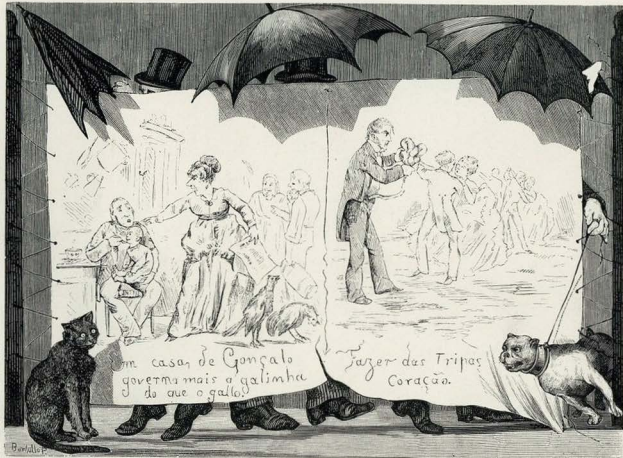 Em casa, de Gonçalo
governa mais a galinha
do que o gallo.
Fazer das Tripas
Coração.